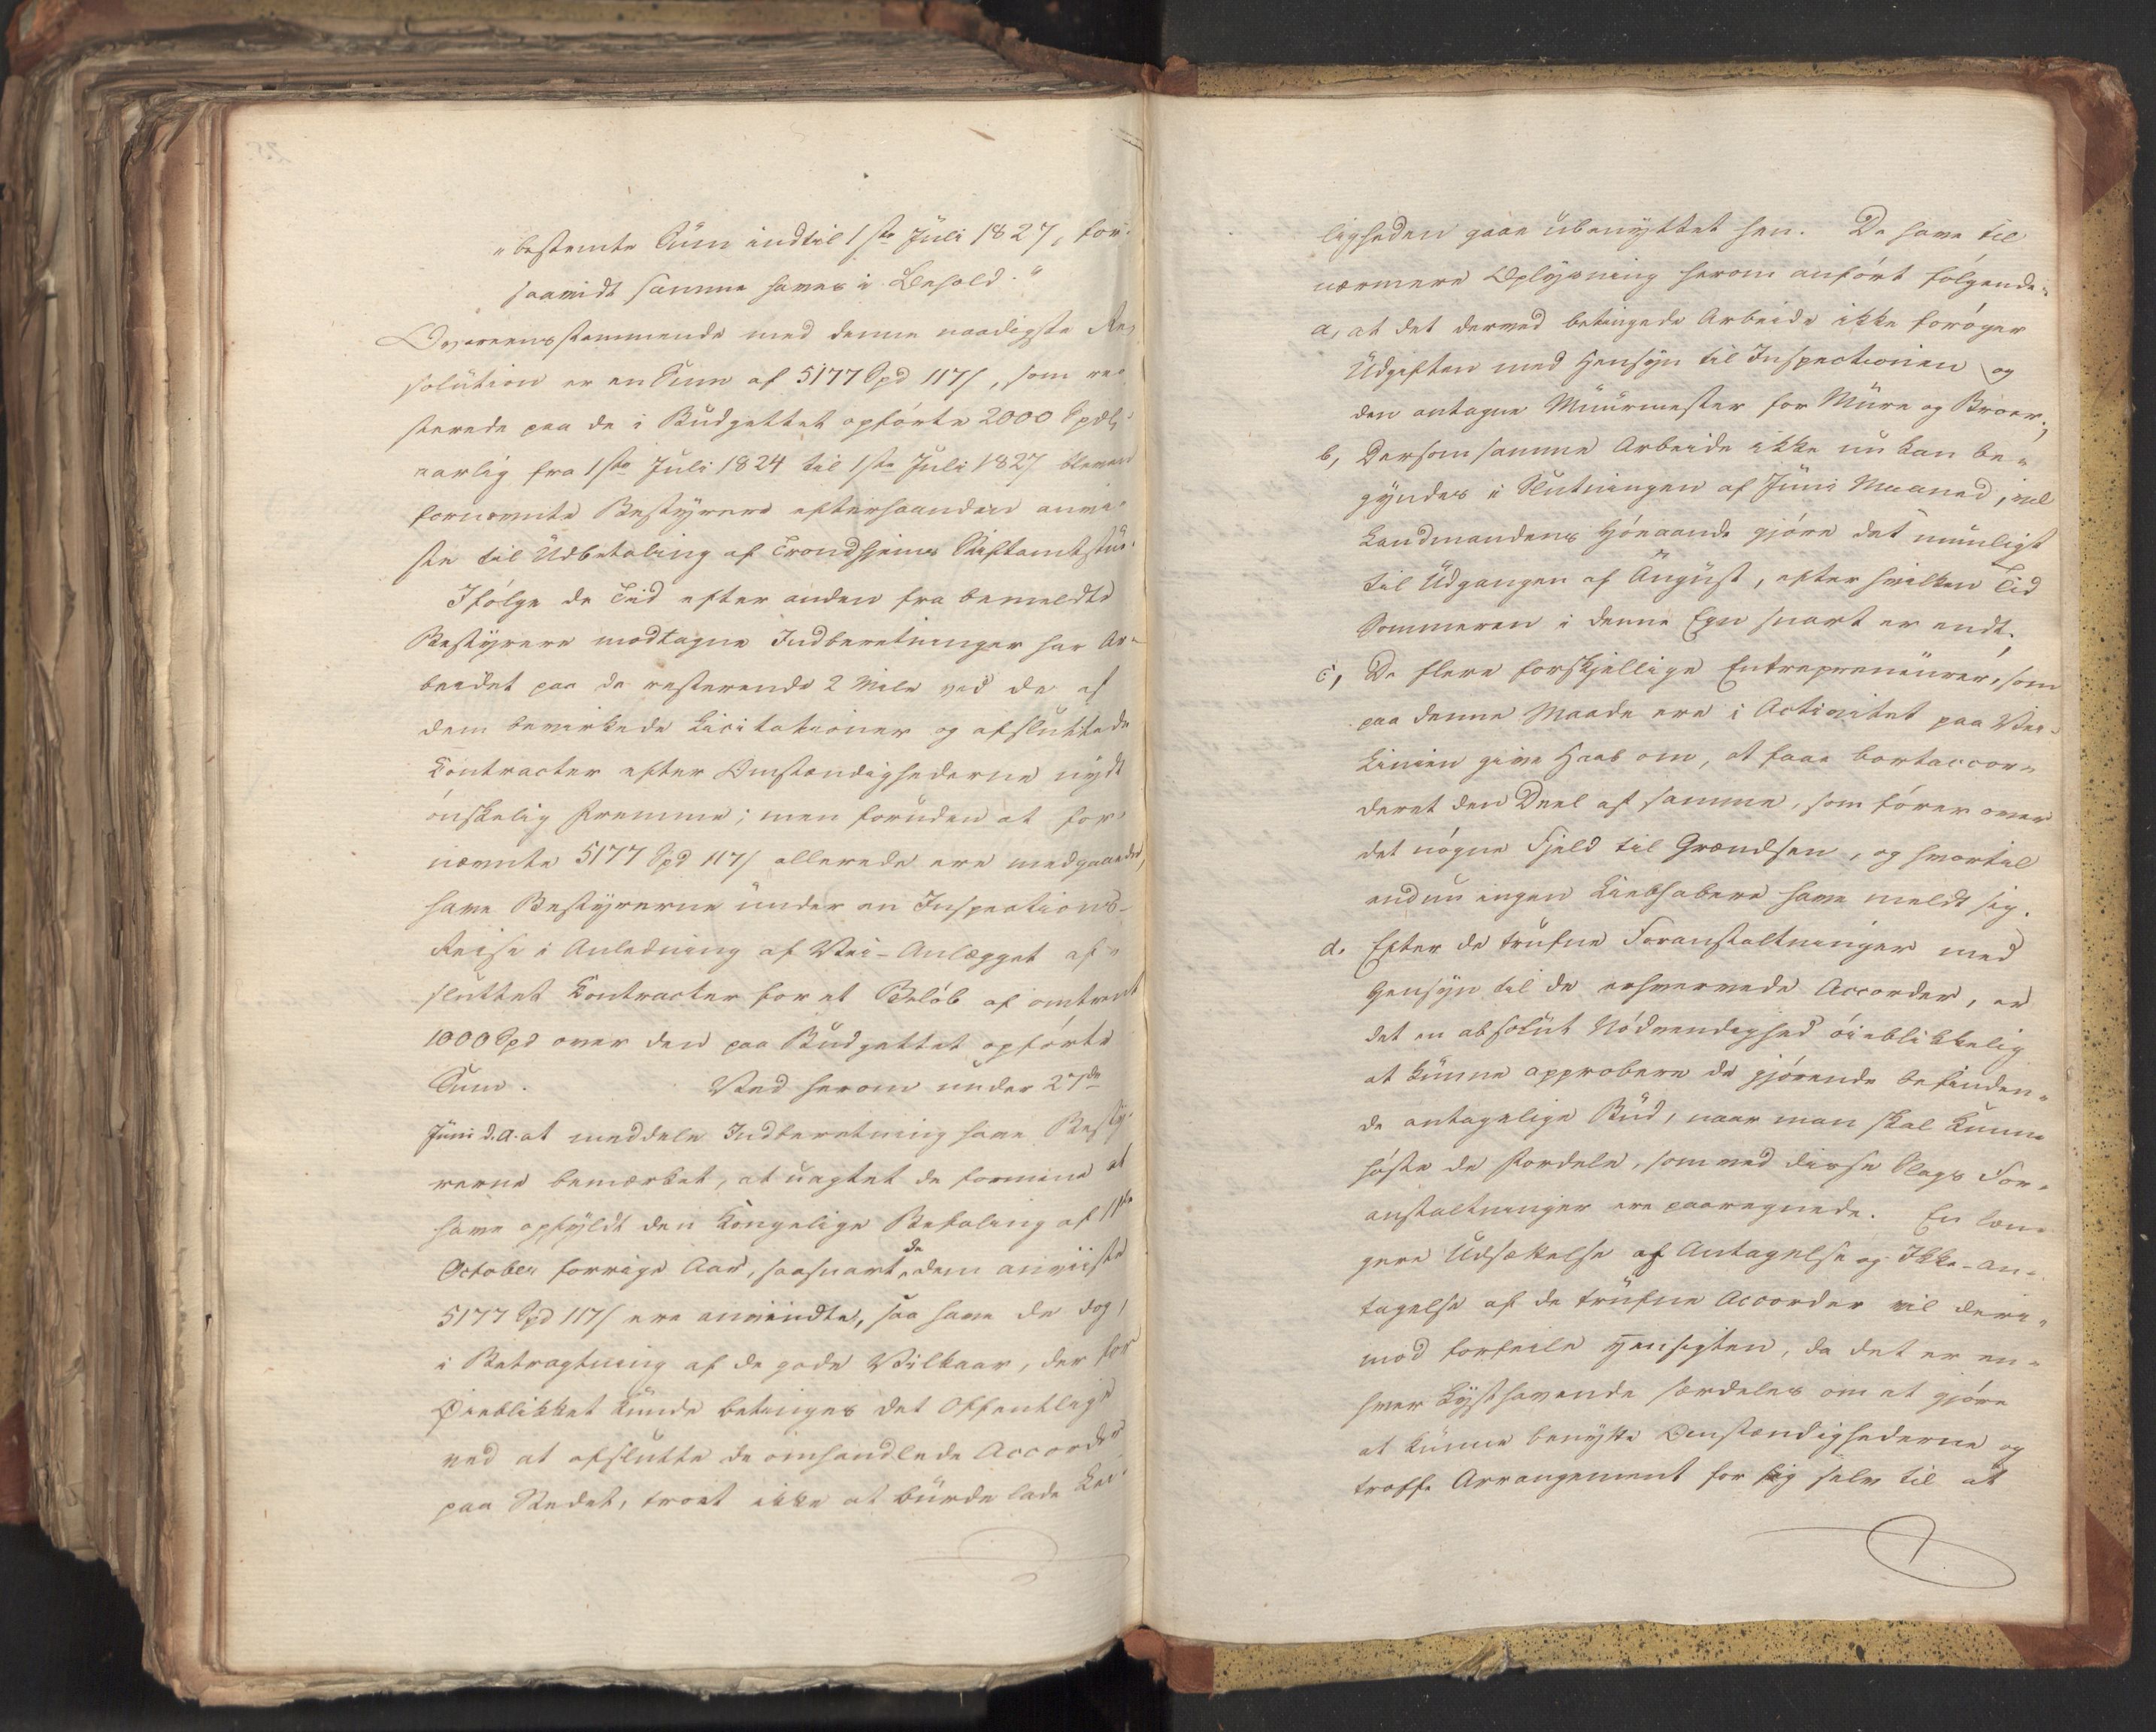 „bestemte Sum indtil 1ste Juli 1827, for-
saavidt samme haves i Behold."
Overeensstemmende med denne naadigste Re-
solution er en Sum af 5177 Spd 117 ß, som re-
sterede paa de i Budgettet opförte 2000 Spdlr
aarlig fra 1ste Juli 1824 til 1ste Juli 1827 bleven
fornævnte Bestyrere efterhaanden anvi-
ste til Udbetaling af Trondhjems Stiftamtstue.
Ifölge de Tid efter anden fra bemeldte
Bestyrere modtagne Indberetninger har Ar-
beidet paa de resterende 2 Mile ved de af
dem bevirkede Licitationer og afsluttede
Contracter efter Omstændighederne nydt
önskelig Fremme; men foruden at for-
nævnte 5177 Spd 117 ß allerede ere medgaaede,
have Bestyrerne under en Inspections-
Reise i Anledning af Vei-Anlægget af-
sluttet Contracter for et Belöb af omtrent
1000 Spd over den paa Budgettet opförte
Sum. Ved herom under 27de
Juni d.A. at meddele Indberetning have Besty-
rerne bemærket, at uagtet de formene at
have opfyldt den Kongelige Befaling af 11te
October forrige Aar, saasnart de dem anviiste
5177 Spd 117 ß ere anvendte, saa have de dog,
i Betragtning af de gode Vilkaar, der for
Öieblikket kunde betinges det Offentlige
ved at afslutte de omhandlede Accorder
paa Stedet, troet ikke at burde lade Lei-
ligheden gaae ubenyttet hen. De have til
nærmere Oplysning herom anfört fölgende:
a, at det derved betingede Arbeide ikke foröger
Udgiften med Hensyn til Inspectionen og
den antagne Muurmester for Mure og Broer;
b, Dersom samme Arbeide ikke nu kan be-
gyndes i Slutningen af Juni Maaned, vil
Landmandens Höeaande gjöre det umuligt
til Udgangen af August, efter hvilken Tid
Sommeren i denne Egn snart er endt.
c, De flere forskjellige Entrepreneurer, som
paa denne Maade ere i Activitet paa Vei-
Linien give Haab om, at faae bortaccor-
deret den Deel af samme, som förer over
det nögne Fjeld til Grændsen, og hvortil
endnu ingen Liebhabere have meldt sig.
d. Efter de trufne Foranstaltninger med
Hensyn til de erhvervede Accorder, er
det en absolut Nödvendighed öieblikkelig
at kunne approbere de gjörende befinden-
de antagelige Bud, naar man skal kunne
höste de Fordele, som ved disse Slags For-
anstaltninger ere paaregnede. En læn-
gere Udsættelse af Antagelse og Ikke-An-
tagelse af de trufne Accorder vil deri-
mod forfeile Hensigten, da det er en-
hver Lysthavende særdeles om at gjöre
at kunne benytte Omstændighederne og
træffe Arrangement for sig selv til at